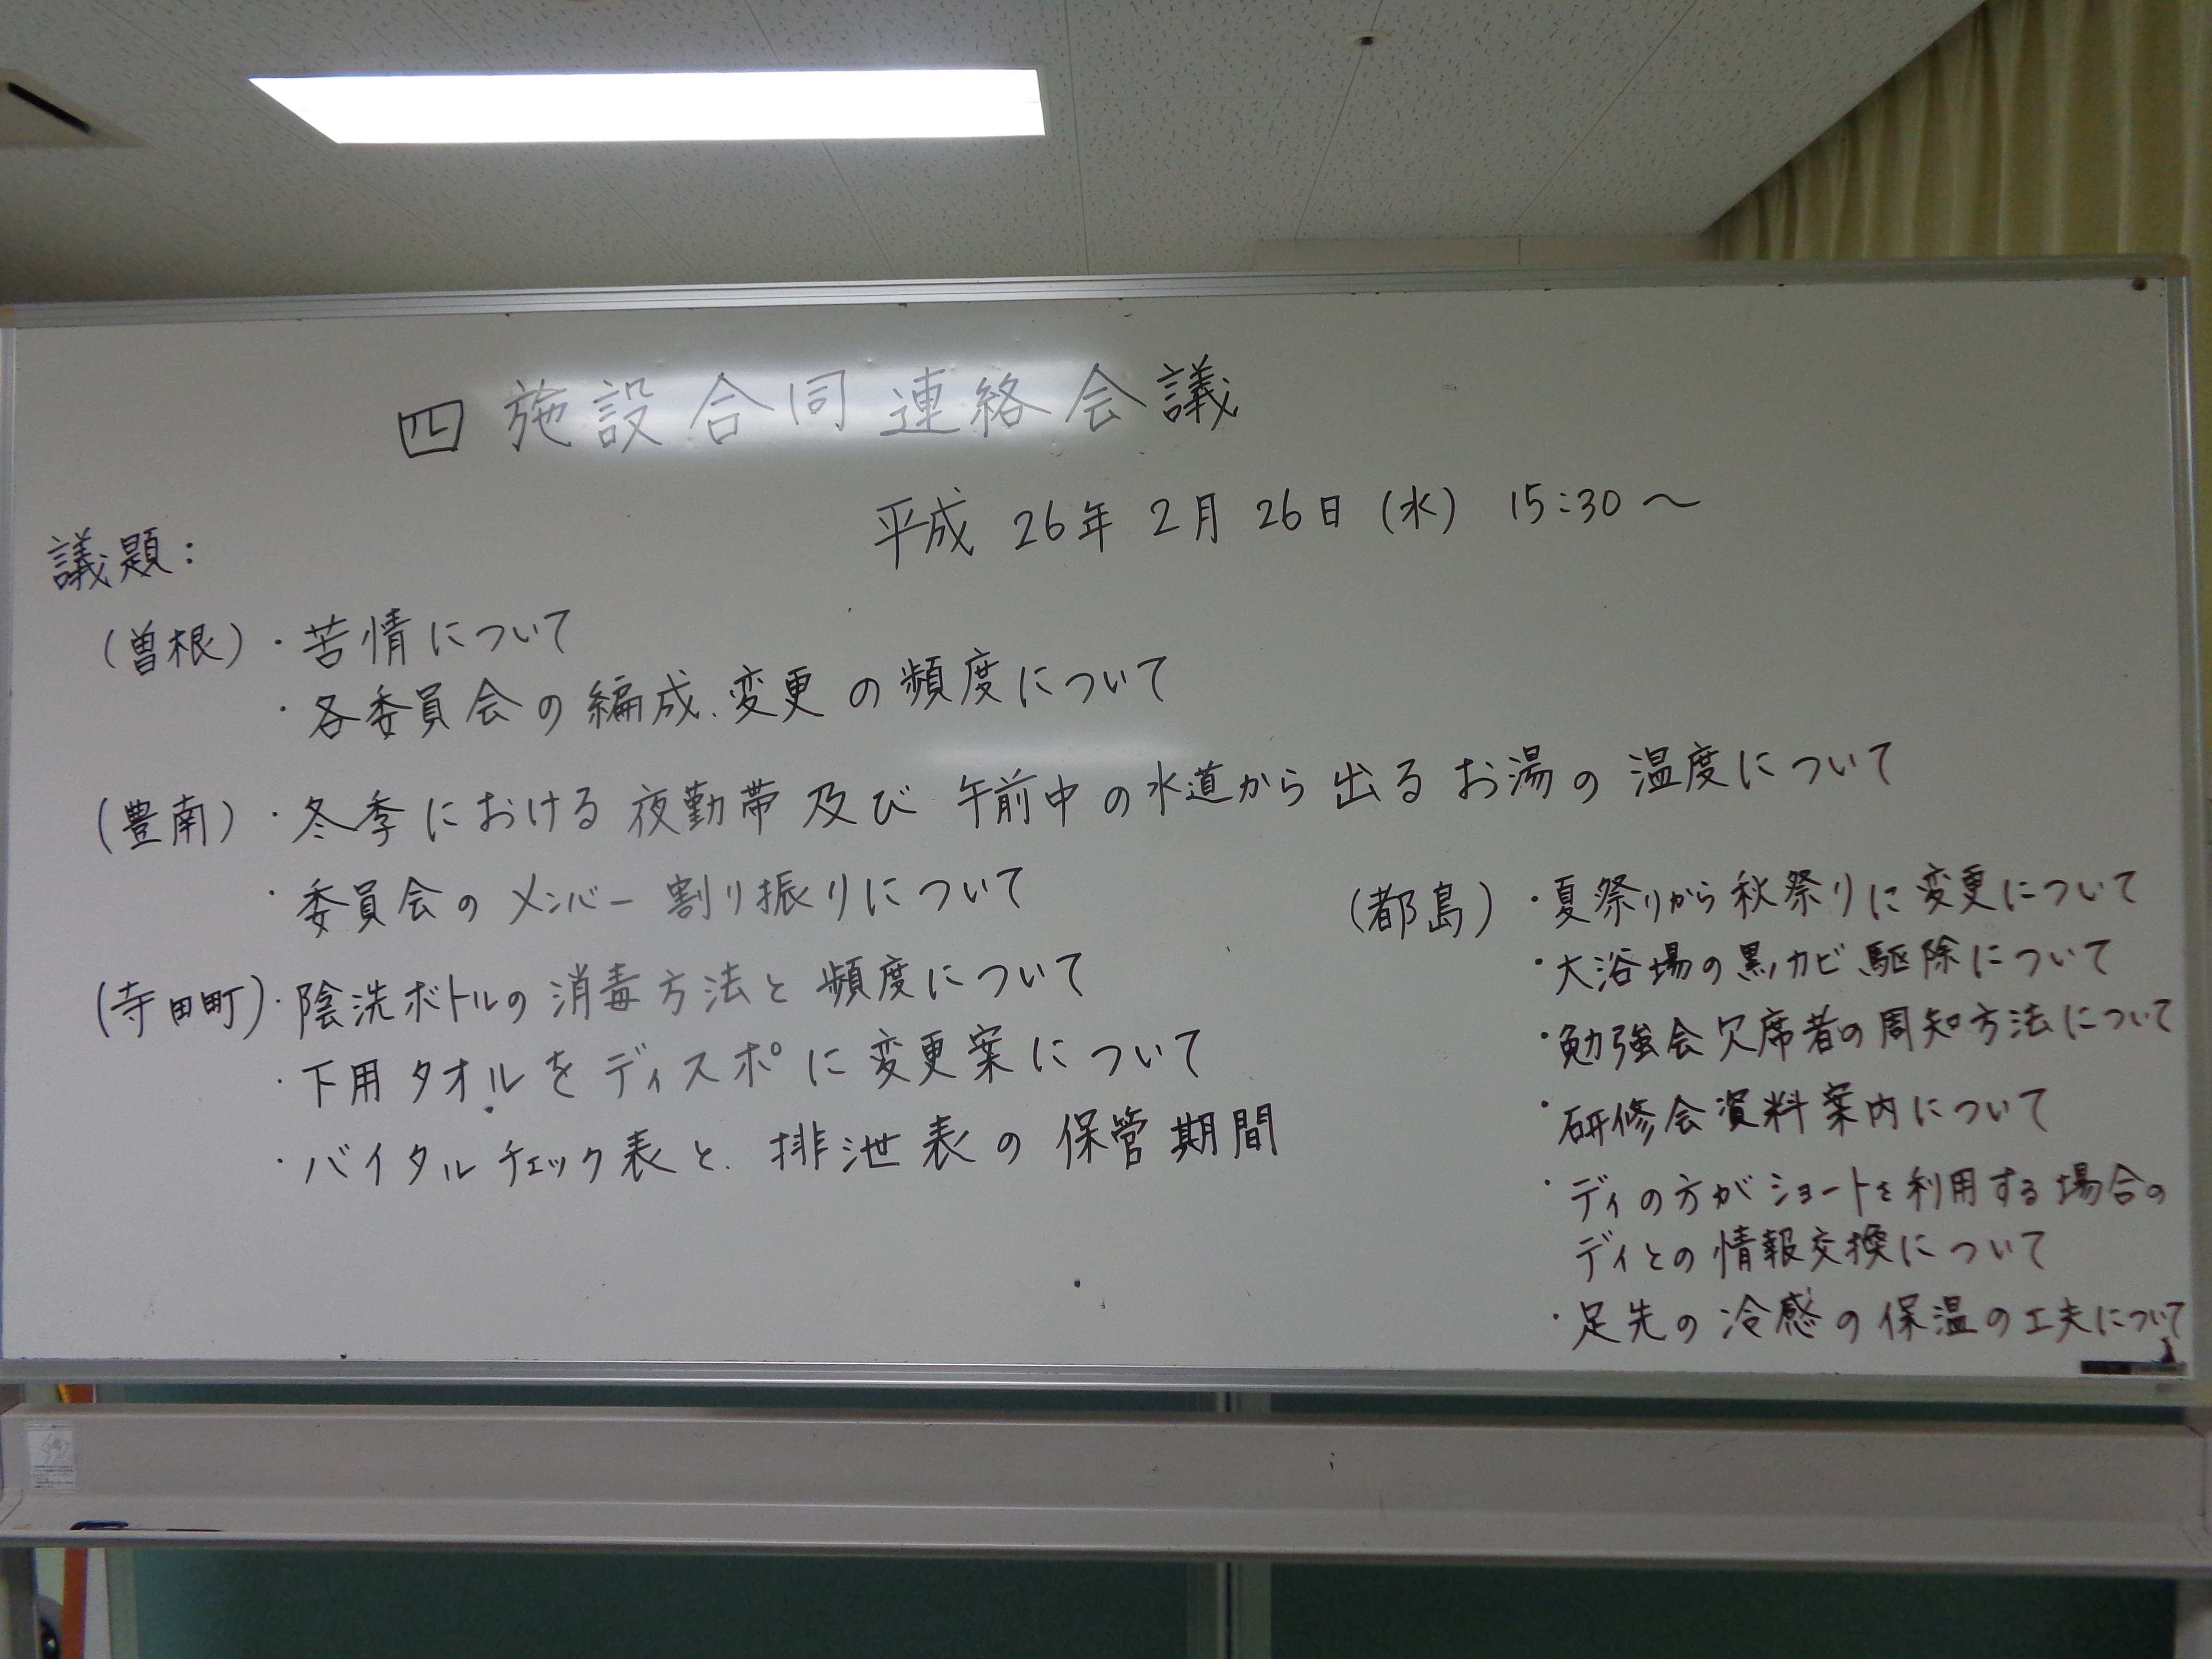 四施設合同連絡会議
平成 26年 2月 26日 (水) 15:30～
議題:
(曽根)・苦情について
・各委員会の編成、変更の頻度について
(豊南)・冬季における夜勤帯及び午前中の水道から出るお湯の温度について
・委員会のメンバー割り振りについて
(寺田町)・陰洗ボトルの消毒方法と頻度について
・下用タオルをディスポに変更案について
・バイタルチェック表と、排泄表の保管期間
(都島)・夏祭りから秋祭りに変更について
・大浴場の黒カビ駆除について
・勉強会欠席者の周知方法について
・研修会資料案内について
・ディの方がショートを利用する場合の
ディとの情報交換について
・足先の冷感の保温の工夫について